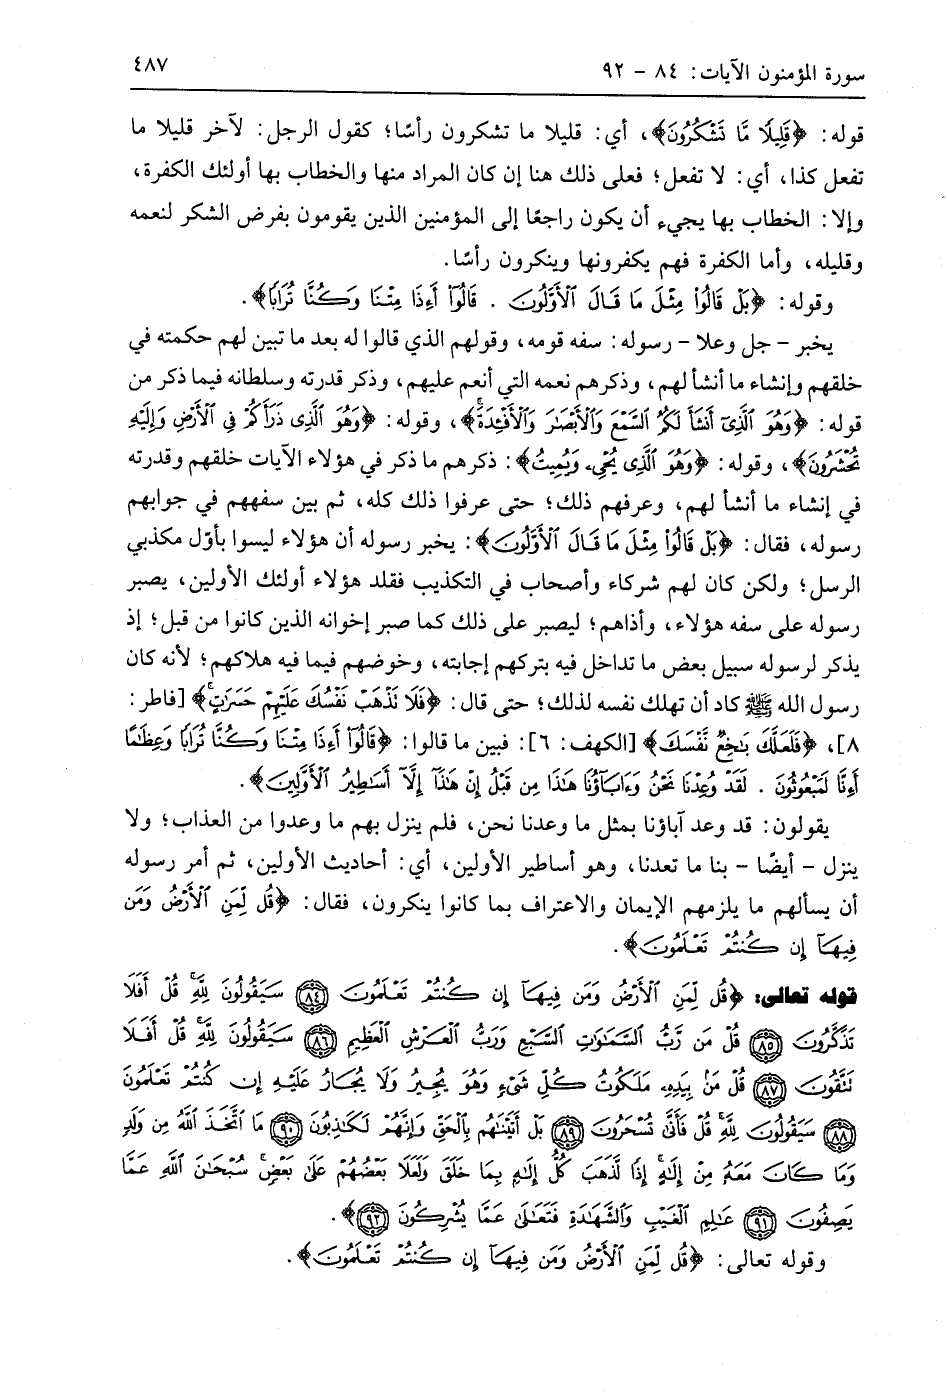 سورة المؤمنون الآيات: ٨٤ - ٩٢
٤٨٧
قوله: ﴿قَلِيلًا مَّا تَشْكُرُونَ﴾، أي: قليلا ما تشكرون رأسًا؛ كقول الرجل: لآخر قليلا ما
تفعل كذا، أي: لا تفعل؛ فعلى ذلك هنا إن كان المراد منها والخطاب بها أولئك الكفرة،
وإلا: الخطاب بها يجيء أن يكون راجعًا إلى المؤمنين الذين يقومون بفرض الشكر لنعمه
وقليله، وأما الكفرة فهم يكفرونها وينكرون رأسًا.
وقوله: ﴿بَلْ قَالُوا۟ مِثْلَ مَا قَالَ ٱلْأَوَّلُونَ . قَالُوٓا۟ أَءِذَا مِتْنَا وَكُنَّا تُرَابًا﴾.
يخبر - جل وعلا - رسوله: سفه قومه، وقولهم الذي قالوا له بعد ما تبين لهم حكمته في
خلقهم وإنشاء ما أنشأ لهم، وذكرهم نعمه التي أنعم عليهم، وذكر قدرته وسلطانه فيما ذكر من
قوله: ﴿وَهُوَ ٱلَّذِىٓ أَنشَأَ لَكُمُ ٱلسَّمْعَ وَٱلْأَبْصَٰرَ وَٱلْأَفْـِٔدَةَ﴾، وقوله: ﴿وَهُوَ ٱلَّذِى ذَرَأَكُمْ فِى ٱلْأَرْضِ وَإِلَيْهِ
تُحْشَرُونَ﴾، وقوله: ﴿وَهُوَ ٱلَّذِى يُحْىِۦ وَيُمِيتُ﴾: ذكرهم ما ذكر في هؤلاء الآيات خلقهم وقدرته
في إنشاء ما أنشأ لهم، وعرفهم ذلك؛ حتى عرفوا ذلك كله، ثم بين سفههم في جوابهم
رسوله، فقال: ﴿بَلْ قَالُوا۟ مِثْلَ مَا قَالَ ٱلْأَوَّلُونَ﴾: يخبر رسوله أن هؤلاء ليسوا بأوّل مكذبي
الرسل؛ ولكن كان لهم شركاء وأصحاب في التكذيب فقلد هؤلاء أولئك الأولين، يصبر
رسوله على سفه هؤلاء، وأذاهم؛ ليصبر على ذلك كما صبر إخوانه الذين كانوا من قبل؛ إذ
يذكر لرسوله سبيل بعض ما تداخل فيه بتركهم إجابته، وخوضهم فيما فيه هلاكهم؛ لأنه كان
رسول الله ﷺ كاد أن تهلك نفسه لذلك؛ حتى قال: ﴿فَلَا تَذْهَبْ نَفْسُكَ عَلَيْهِمْ حَسَرَٰتٍ﴾ [فاطر:
٨]، ﴿فَلَعَلَّكَ بَٰخِعٌ نَّفْسَكَ﴾ [الكهف: ٦]: فبين ما قالوا: ﴿قَالُوٓا۟ أَءِذَا مِتْنَا وَكُنَّا تُرَابًا وَعِظَٰمًا
أَءِنَّا لَمَبْعُوثُونَ . لَقَدْ وُعِدْنَا نَحْنُ وَءَابَآؤُنَا هَٰذَا مِن قَبْلُ إِنْ هَٰذَآ إِلَّآ أَسَٰطِيرُ ٱلْأَوَّلِينَ﴾.
يقولون: قد وعد آباؤنا بمثل ما وعدنا نحن، فلم ينزل بهم ما وعدوا من العذاب؛ ولا
ينزل - أيضًا - بنا ما تعدنا، وهو أساطير الأولين، أي: أحاديث الأولين، ثم أمر رسوله
أن يسألهم ما يلزمهم الإيمان والاعتراف بما كانوا ينكرون، فقال: ﴿قُل لِّمَنِ ٱلْأَرْضُ وَمَن
فِيهَآ إِن كُنتُمْ تَعْلَمُونَ﴾.
قوله تعالى: ﴿قُل لِّمَنِ ٱلْأَرْضُ وَمَن فِيهَآ إِن كُنتُمْ تَعْلَمُونَ ٨٤ سَيَقُولُونَ لِلَّهِ ۚ قُلْ أَفَلَا
تَذَكَّرُونَ ٨٥ قُلْ مَن رَّبُّ ٱلسَّمَٰوَٰتِ ٱلسَّبْعِ وَرَبُّ ٱلْعَرْشِ ٱلْعَظِيمِ ٨٦ سَيَقُولُونَ لِلَّهِ ۚ قُلْ أَفَلَا
تَتَّقُونَ ٨٧ قُلْ مَنۢ بِيَدِهِۦ مَلَكُوتُ كُلِّ شَىْءٍ وَهُوَ يُجِيرُ وَلَا يُجَارُ عَلَيْهِ إِن كُنتُمْ تَعْلَمُونَ
٨٨ سَيَقُولُونَ لِلَّهِ ۚ قُلْ فَأَنَّىٰ تُسْحَرُونَ ٨٩ بَلْ أَتَيْنَٰهُم بِٱلْحَقِّ وَإِنَّهُمْ لَكَٰذِبُونَ ٩٠ مَا ٱتَّخَذَ ٱللَّهُ مِن وَلَدٍ
وَمَا كَانَ مَعَهُۥ مِنْ إِلَٰهٍ ۚ إِذًا لَّذَهَبَ كُلُّ إِلَٰهٍۭ بِمَا خَلَقَ وَلَعَلَا بَعْضُهُمْ عَلَىٰ بَعْضٍ ۚ سُبْحَٰنَ ٱللَّهِ عَمَّا
يَصِفُونَ ٩١ عَٰلِمِ ٱلْغَيْبِ وَٱلشَّهَٰدَةِ فَتَعَٰلَىٰ عَمَّا يُشْرِكُونَ ٩٢﴾.
وقوله تعالى: ﴿قُل لِّمَنِ ٱلْأَرْضُ وَمَن فِيهَآ إِن كُنتُمْ تَعْلَمُونَ﴾.